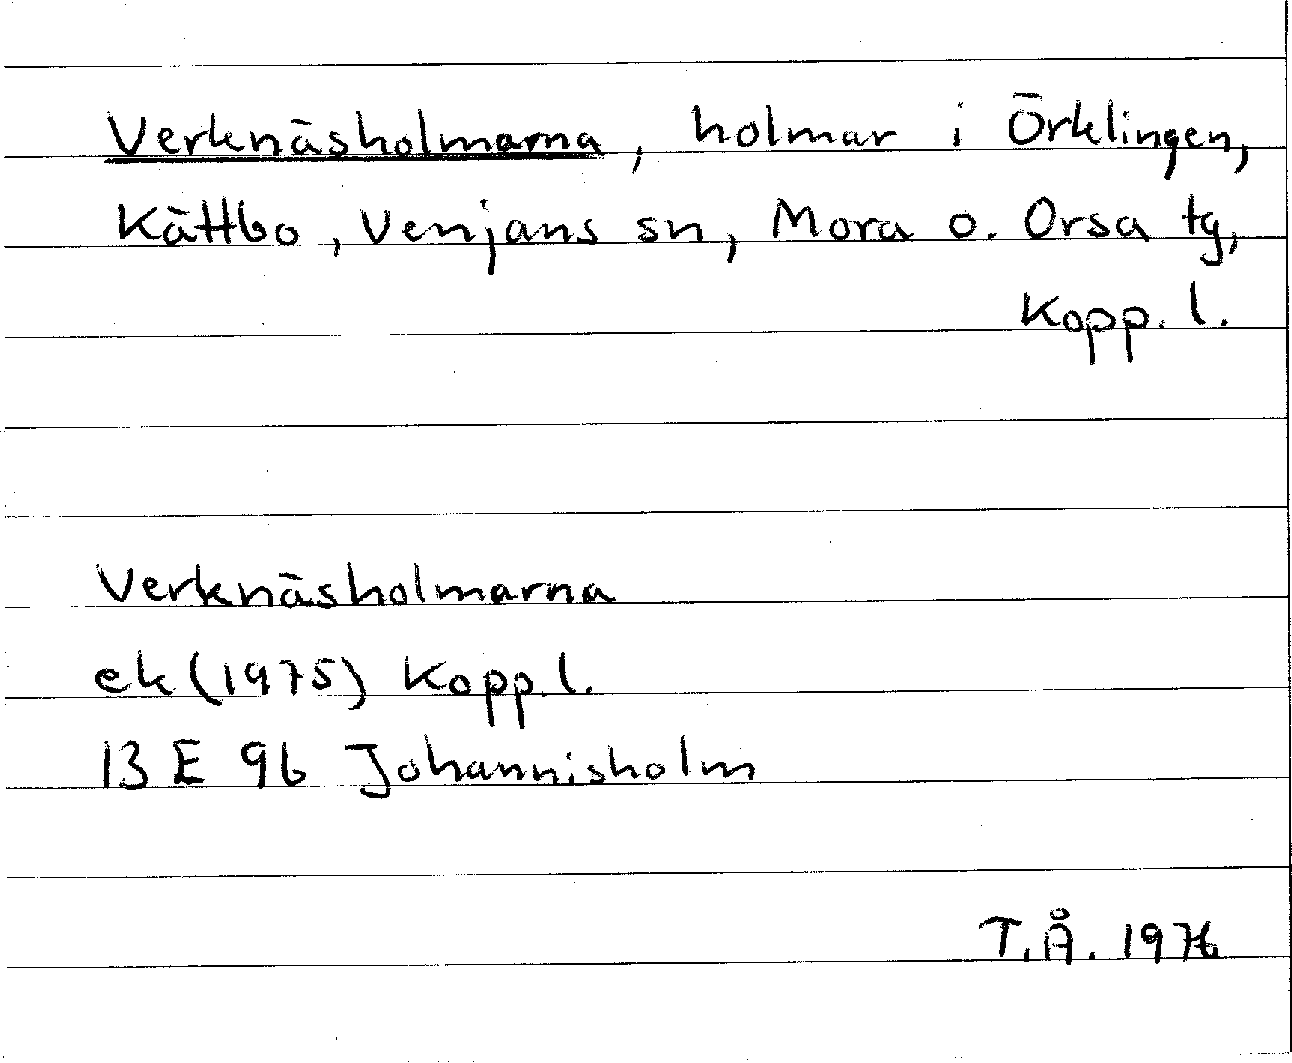 Verknäsholmarna, holmar i Örklingen,
Kättbo, Venjans sn, Mora o. Orsa tg,
Kopp. l.
Verknäsholmarna
ek (1975) Kopp. l.
13 E 9b Johannisholm
T.Å. 1976